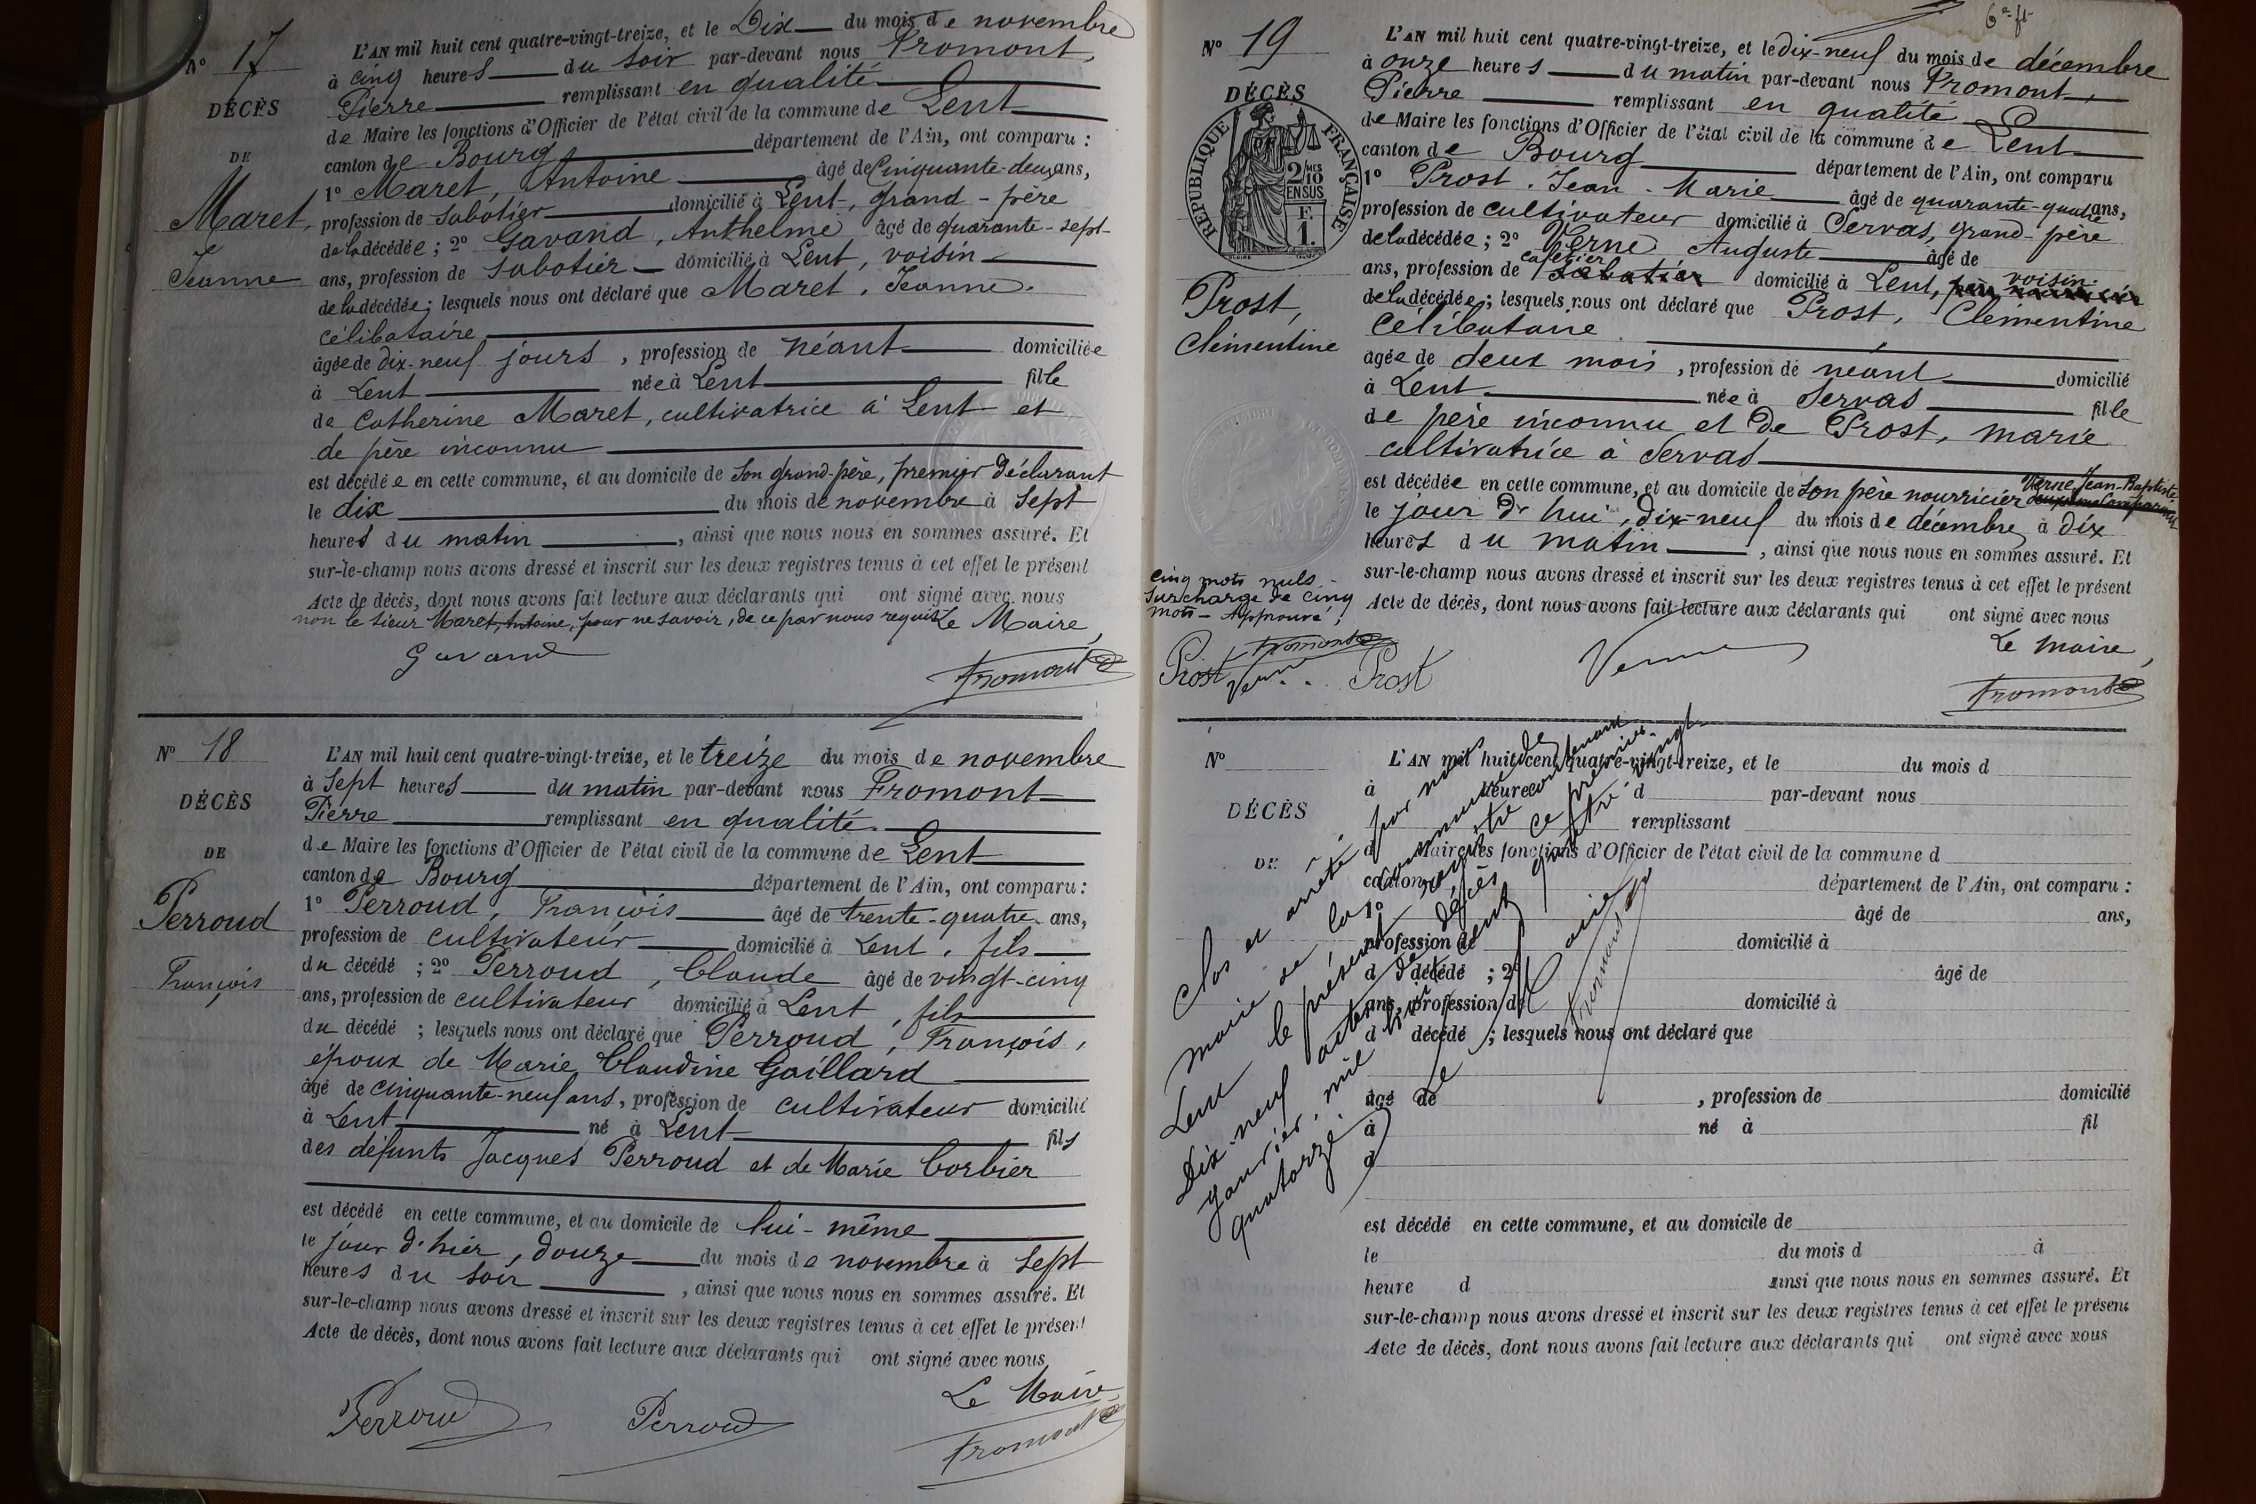 N° 17
DÉCÈS
DE
Maret,
Jeanne
L'AN mil huit cent quatre-vingt-treize, et le Dix du mois de novembre
à cinq heures du soir par-devant nous Fromont,
Pierre remplissant en qualité
de Maire les fonctions d'Officier de l'état civil de la commune de Lent
canton de Bourg département de l'Ain, ont comparu :
1° Maret, Antoine âgé de Cinquante-deux ans,
profession de sabotier domicilié à Lent, grand-père
de la décédée ; 2° Gavand, Anthelme âgé de quarante-sept
ans, profession de sabotier domicilié à Lent, voisin
de la décédée ; lesquels nous ont déclaré que Maret, Jeanne.
célibataire
âgée de dix-neuf jours, profession de néant domiciliée
à Lent née à Lent fille
de Catherine Maret, cultivatrice à Lent et
de père inconnu
est décédée en cette commune, et au domicile de son grand-père, premier déclarant
le dix du mois de novembre à sept
heures du matin, ainsi que nous nous en sommes assuré. Et
sur-le-champ nous avons dressé et inscrit sur les deux registres tenus à cet effet le présent
Acte de décès, dont nous avons fait lecture aux déclarants qui ont signé avec nous
non le sieur Maret, Antoine, pour ne savoir, de ce par nous requis Le Maire,
Gavand
Fromont
N° 18
DÉCÈS
DE
Perroud
François
L'AN mil huit cent quatre-vingt-treize, et le treize du mois de novembre
à sept heures du matin par-devant nous Fromont
Pierre remplissant en qualité
de Maire les fonctions d'Officier de l'état civil de la commune de Lent
canton de Bourg département de l'Ain, ont comparu :
1° Perroud, François âgé de trente-quatre ans,
profession de cultivateur domicilié à Lent, fils
du décédé ; 2° Perroud, Claude âgé de vingt-cinq
ans, profession de cultivateur domicilié à Lent, fils
du décédé ; lesquels nous ont déclaré que Perroud, François,
époux de Marie Claudine Gaillard
âgé de cinquante-neuf ans, profession de cultivateur domicilié
à Lent né à Lent fils
des défunts Jacques Perroud et de Marie Corbier
est décédé en cette commune, et au domicile de lui-même
le jour d'hier, douze du mois de novembre à sept
heures du soir, ainsi que nous nous en sommes assuré. Et
sur-le-champ nous avons dressé et inscrit sur les deux registres tenus à cet effet le présent
Acte de décès, dont nous avons fait lecture aux déclarants qui ont signé avec nous
Le Maire
Perroud Perroud
Fromont
N° 19
DÉCÈS
RÉPUBLIQUE FRANÇAISE
2/10 EN SUS
F.
1.
Prost,
Clémentine
L'AN mil huit cent quatre-vingt-treize, et le dix-neuf du mois de décembre
à onze heures du matin par-devant nous Fromont,
Pierre remplissant en qualité
de Maire les fonctions d'Officier de l'état civil de la commune de Lent
canton de Bourg département de l'Ain, ont comparu
1° Prost, Jean-Marie âgé de quarante-quatre ans,
profession de cultivateur domicilié à Servas, grand-père
de la décédée ; 2° Verne Auguste âgé de
ans, profession de cafetier sabotier domicilié à Lent, voisin
de la décédée ; lesquels nous ont déclaré que Prost, Clémentine
célibataire
âgée de deux mois, profession de néant domicilié
à Lent née à Servas fille
de père inconnu et de Prost, marie
cultivatrice à Servas
est décédée en cette commune, et au domicile de son père nourricier Verne, Jean-Baptiste
le jour d'hui, dix-neuf du mois de décembre à dix
heures du matin, ainsi que nous nous en sommes assuré. Et
sur-le-champ nous avons dressé et inscrit sur les deux registres tenus à cet effet le présent
Acte de décès, dont nous avons fait lecture aux déclarants qui ont signé avec nous
Le maire,
cinq mots nuls
surcharge de cinq
mots - Approuvé !
Fromont
Prost Verne Prost Verne Fromont
N°
DÉCÈS
DE
L'AN mil huit cent quatre-vingt-treize, et le du mois d
à heure d par-devant nous
remplissant
d Maire les fonctions d'Officier de l'état civil de la commune d
canton département de l'Ain, ont comparu :
1° âgé de ans,
profession de domicilié à
d décédé ; 2° âgé de
ans, profession de domicilié à
d décédé ; lesquels nous ont déclaré que
âgé de , profession de domicilié
à né à fil
d
est décédé en cette commune, et au domicile de
le du mois d à
heure d ainsi que nous nous en sommes assuré. Et
sur-le-champ nous avons dressé et inscrit sur les deux registres tenus à cet effet le présent
Acte de décès, dont nous avons fait lecture aux déclarants qui ont signé avec nous
Clos et arrêté par nous
maire de la commune de
Lent le présent registre contenant
Dix-neuf actes de décès ce premier
janvier, mil huit cent quatre-vingt-
quatorze
Le Maire
Fromont